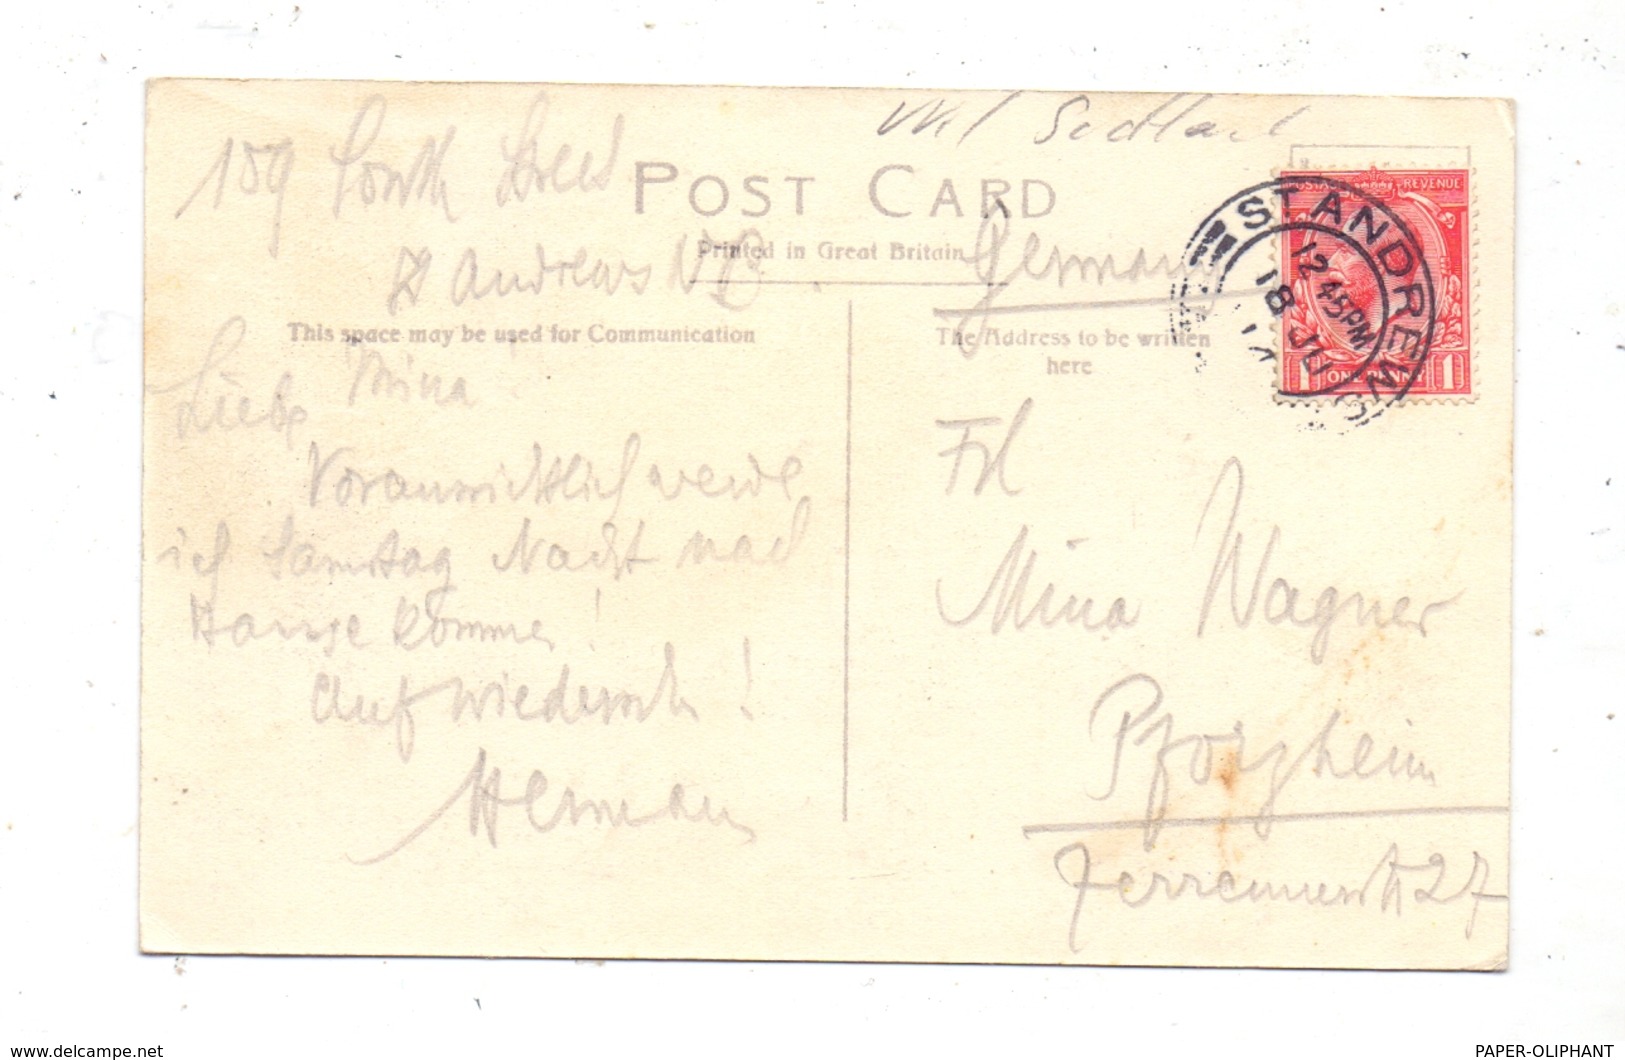 Schottland
109 South Street
St Andrews NB
POST CARD
Printed in Great Britain
Germany
This space may be used for Communication
The Address to be written
here
Liebe Mina!
Voraussichtlich werde
ich Samstag Nacht nach
Hause kommen!
Auf Wiedersehn!
Hermann
Frl
Mina Wagner
Pforzheim
Zerrennerstr 27
ST ANDREWS
12 45PM
18 JU
14
POSTAGE REVENUE
1 ONE PENNY 1
delcampe.net
PAPER-OLIPHANT